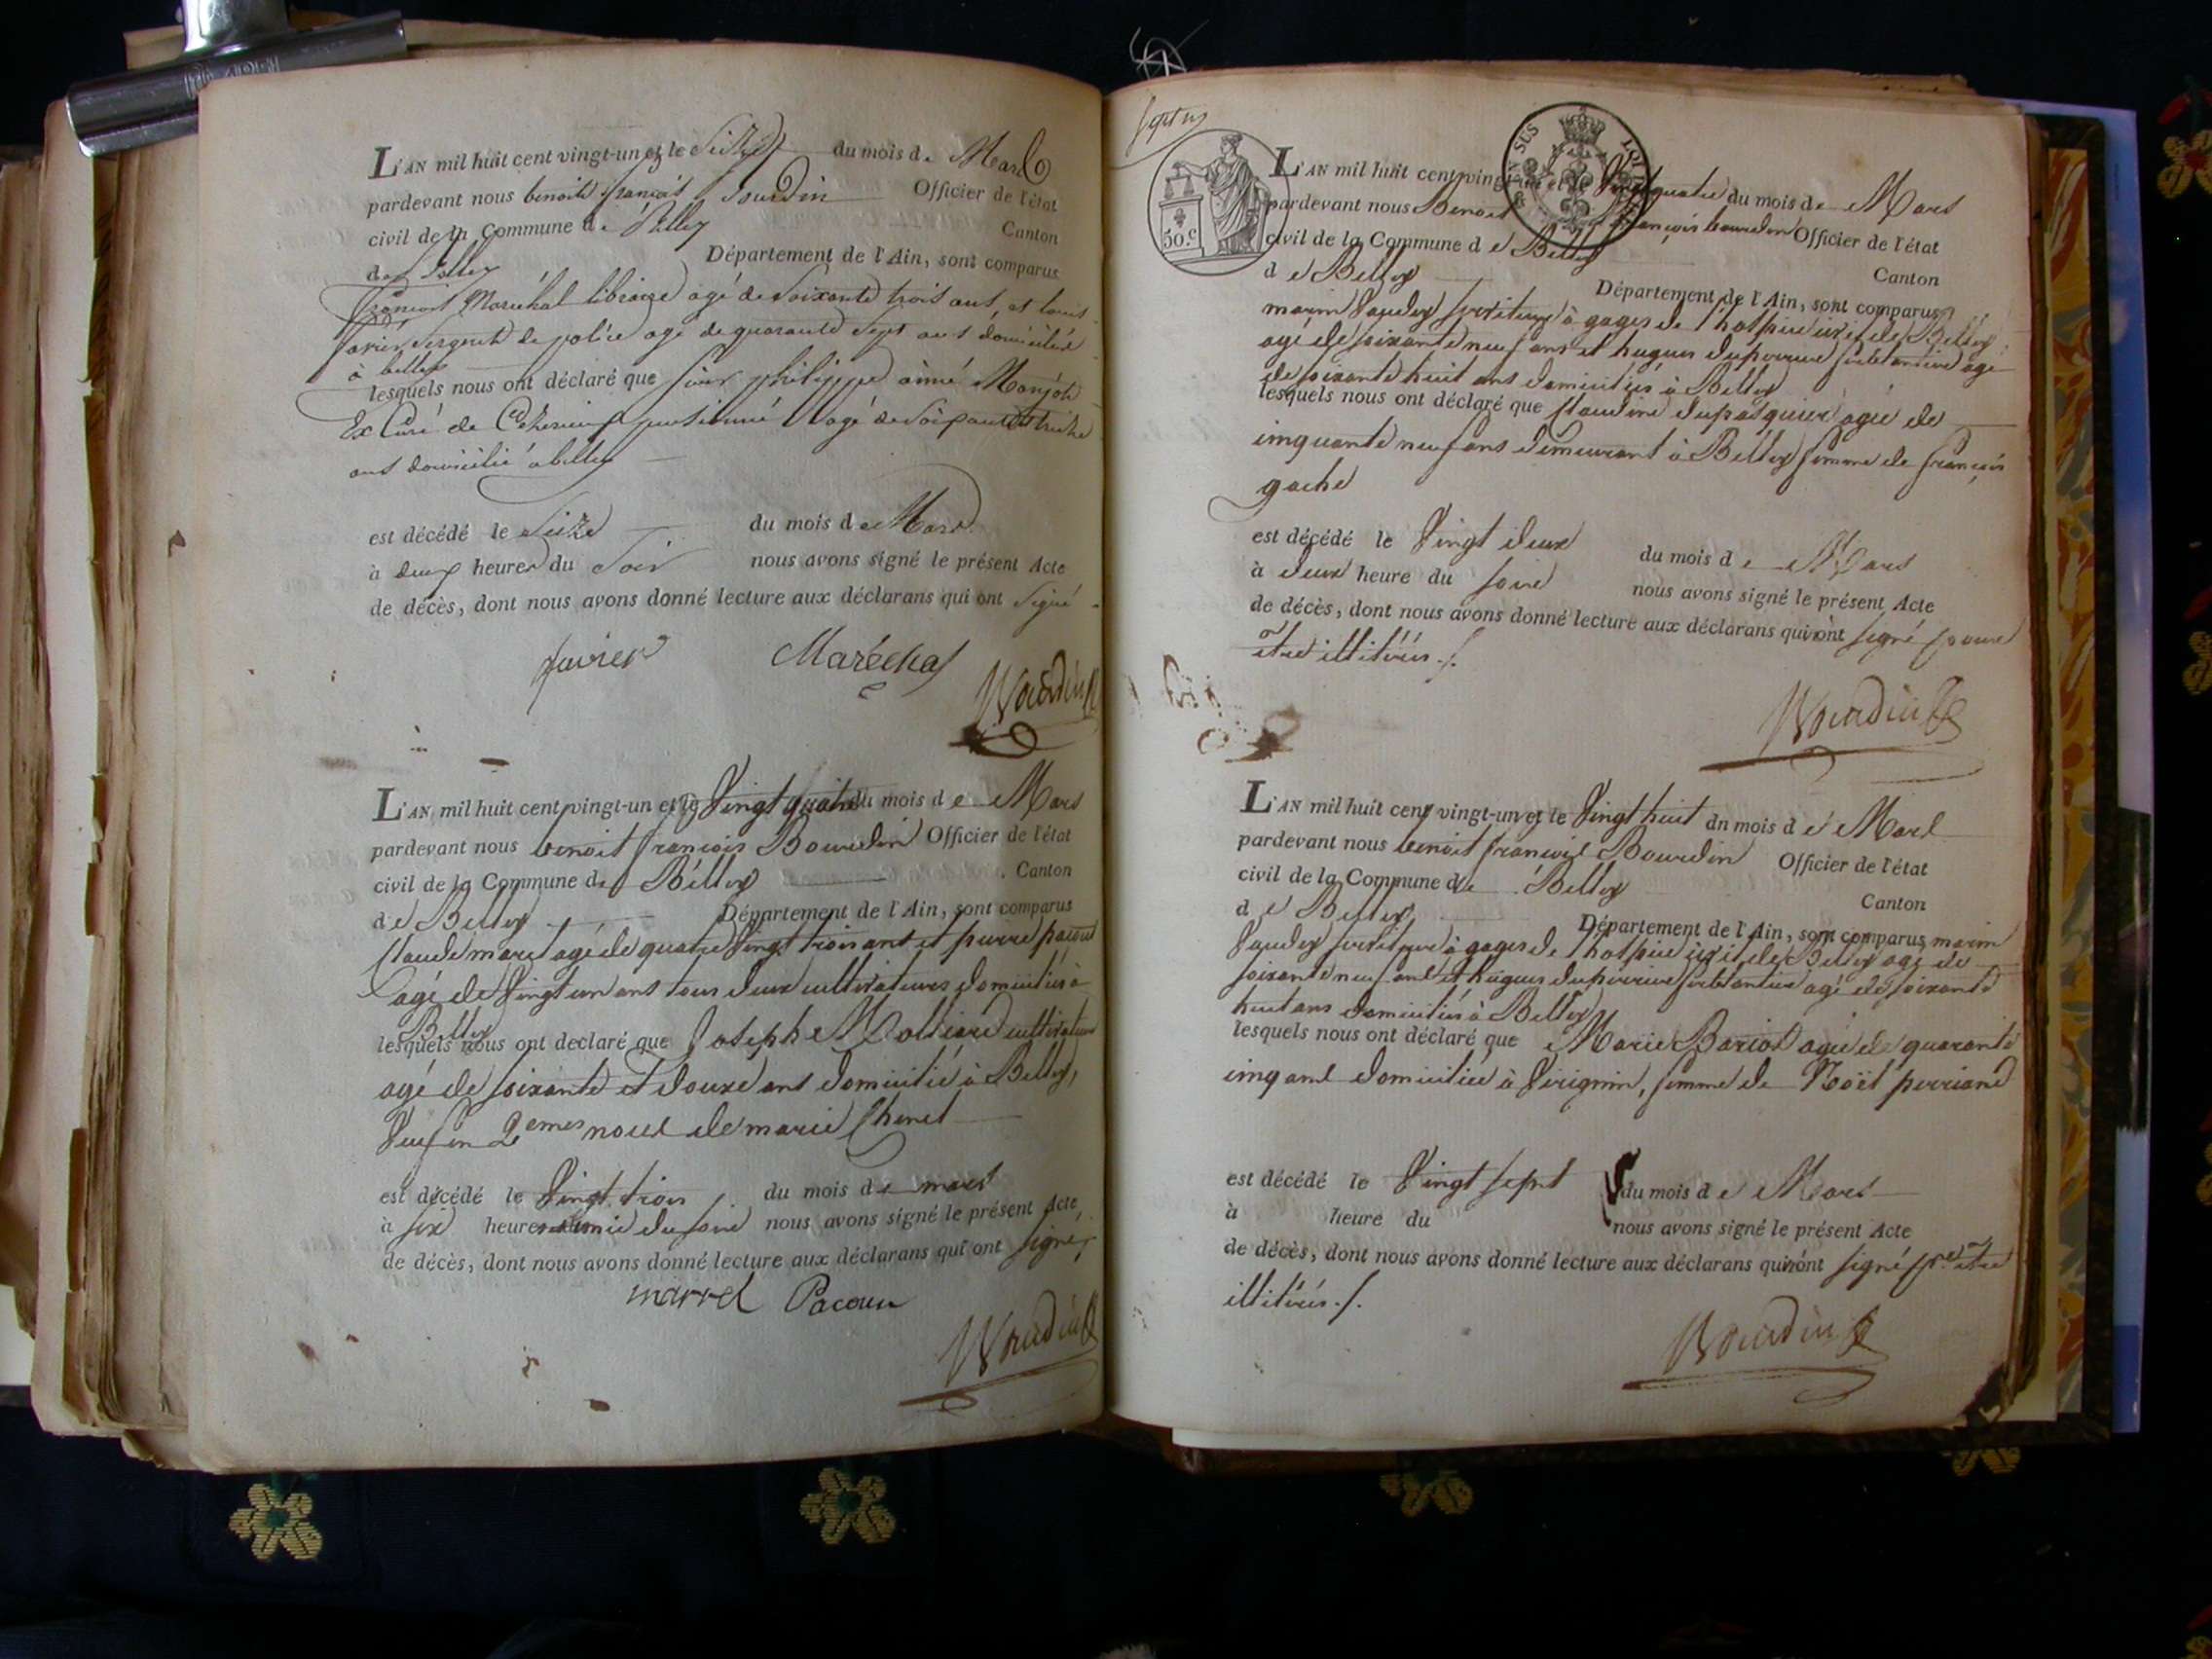 L'AN mil huit cent vingt-un et le Seize du mois de Mars
pardevant nous benoit françois Bourdin Officier de l'état
civil de la Commune de Belley Canton
de Belley Département de l'Ain, sont comparus
François Maréchal libraire agé de Soixante trois ans, et louis
favier Sergent de police agé de quarante Sept ans domiciliés
à belley
lesquels nous ont déclaré que philippe aimé
Ex Curé de pensionné agé de Soixante treize
ans domicilié a belley
est décédé le Seize du mois de Mars
à deux heures du Soir nous avons signé le présent Acte
de décès, dont nous avons donné lecture aux déclarans qui ont Signé
favier Maréchal
Bourdin
L'AN mil huit cent vingt-un et le Vingt quatre du mois de Mars
pardevant nous benoit françois Bourdin Officier de l'état
civil de la Commune de Belley Canton
de Belley Département de l'Ain, sont comparus
Claude maret agé de quatre Vingt trois ans et pierre pacoud
agé de Vingt un ans tous deux cultivateurs domiciliés à
Belley
lesquels nous ont déclaré que Joseph Molliard cultivateur
agé de soixante et douze ans domicilié à Belley,
Veuf en 2emes noces de marie
est décédé le Vingt trois du mois de mars
à six heures et demie du soir nous avons signé le présent Acte
de décès, dont nous avons donné lecture aux déclarans qui ont signé,
marret Pacoud
Bourdin
50.c
SUS LOI
L'AN mil huit cent vingt-un et le Vingt quatre du mois de Mars
pardevant nous Benoit françois bourdin Officier de l'état
civil de la Commune de Belley
de Belley Canton
Département de l'Ain, sont comparus
marin serviteur à gages de l'hospice civil de Belley
agé de soixante neuf ans et hugues agé
de soixante huit ans domiciliés à Belley
lesquels nous ont déclaré que Claudine dupasquier agée de
cinquante neuf ans demeurant à Belley femme de françois
gache
est décédé le Vingt deux du mois de Mars
à deux heure du soir nous avons signé le présent Acte
de décès, dont nous avons donné lecture aux déclarans qui n'ont signé pour
être illitérés ./.
Bourdin
L'AN mil huit cent vingt-un et le Vingt huit du mois de Mars
pardevant nous benoit françois Bourdin Officier de l'état
civil de la Commune de Belley
de Belley Canton
Département de l'Ain, sont comparus marin
serviteur à gages de l'hospice civil de Belley agé de
soixante neuf ans et hugues agé de soixante
huit ans domiciliés à Belley
lesquels nous ont déclaré que Marie Bariot agée de quarante
cinq ans domiciliée à Virignin, femme de Noël perriand
est décédé le Vingt sept du mois de Mars
à heure du nous avons signé le présent Acte
de décès, dont nous avons donné lecture aux déclarans qui n'ont signé pr être
illitérés ./.
Bourdin